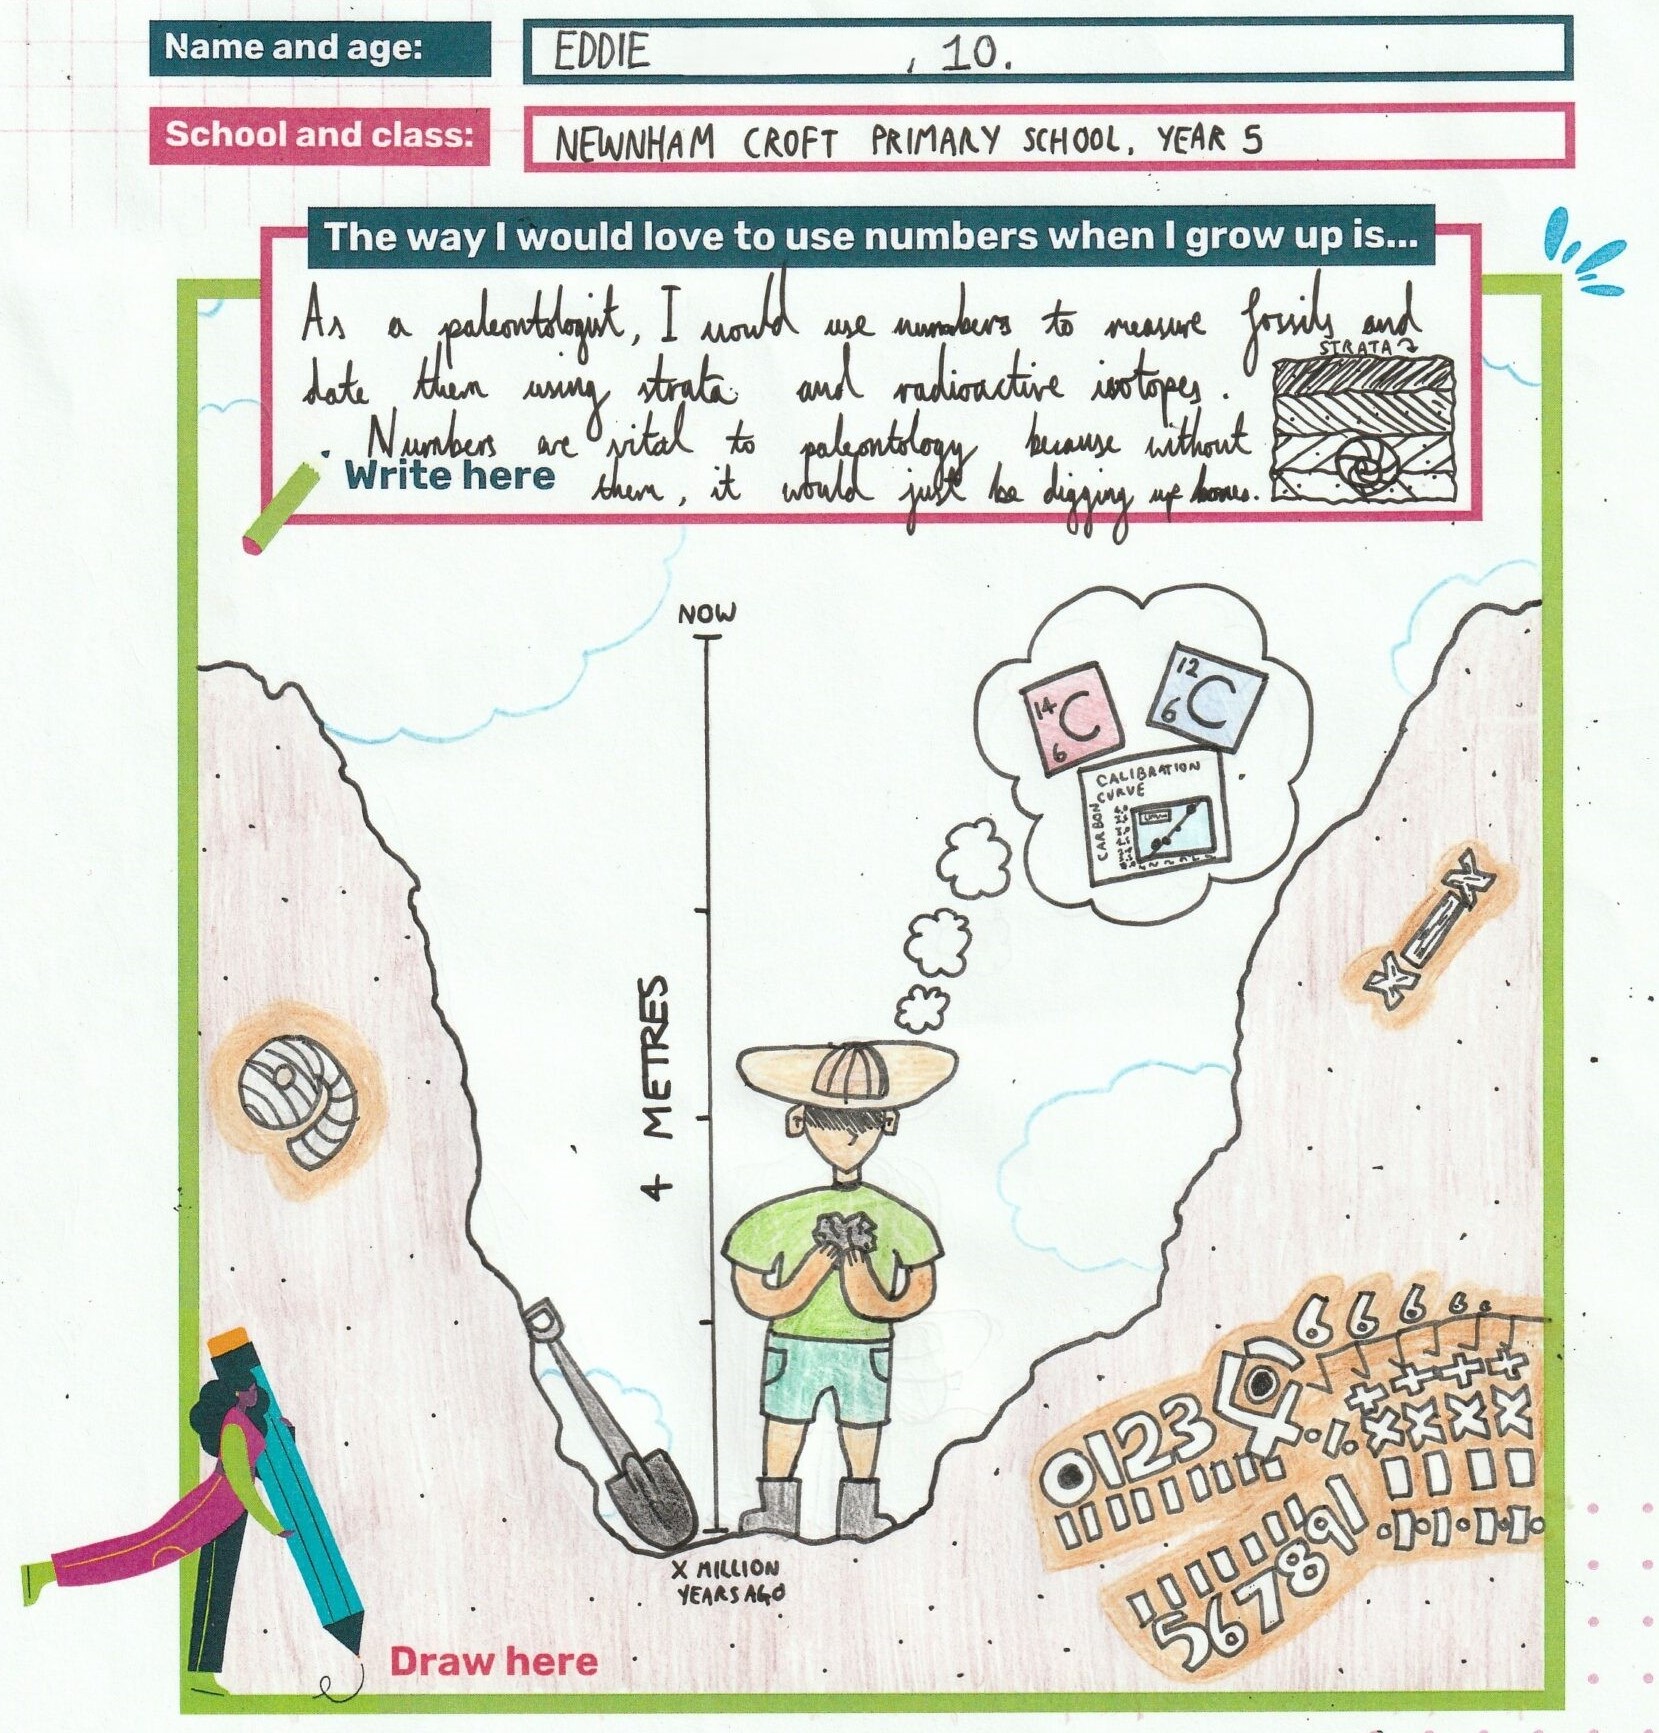 Name and age:
EDDIE , 10.
School and class:
NEWNHAM CROFT PRIMARY SCHOOL, YEAR 5
The way I would love to use numbers when I grow up is...
As a paleontologist, I would use numbers to measure fossils and
STRATA
date them using strata and radioactive isotopes.
Numbers are vital to paleontology because without
Write here
them, it would just be digging up bones.
NOW
14 C 6
12 C 6
CALIBRATION
CURVE
CARBON
4 METRES
6 6 6 6
0123
56789
X MILLION
YEARS AGO
Draw here